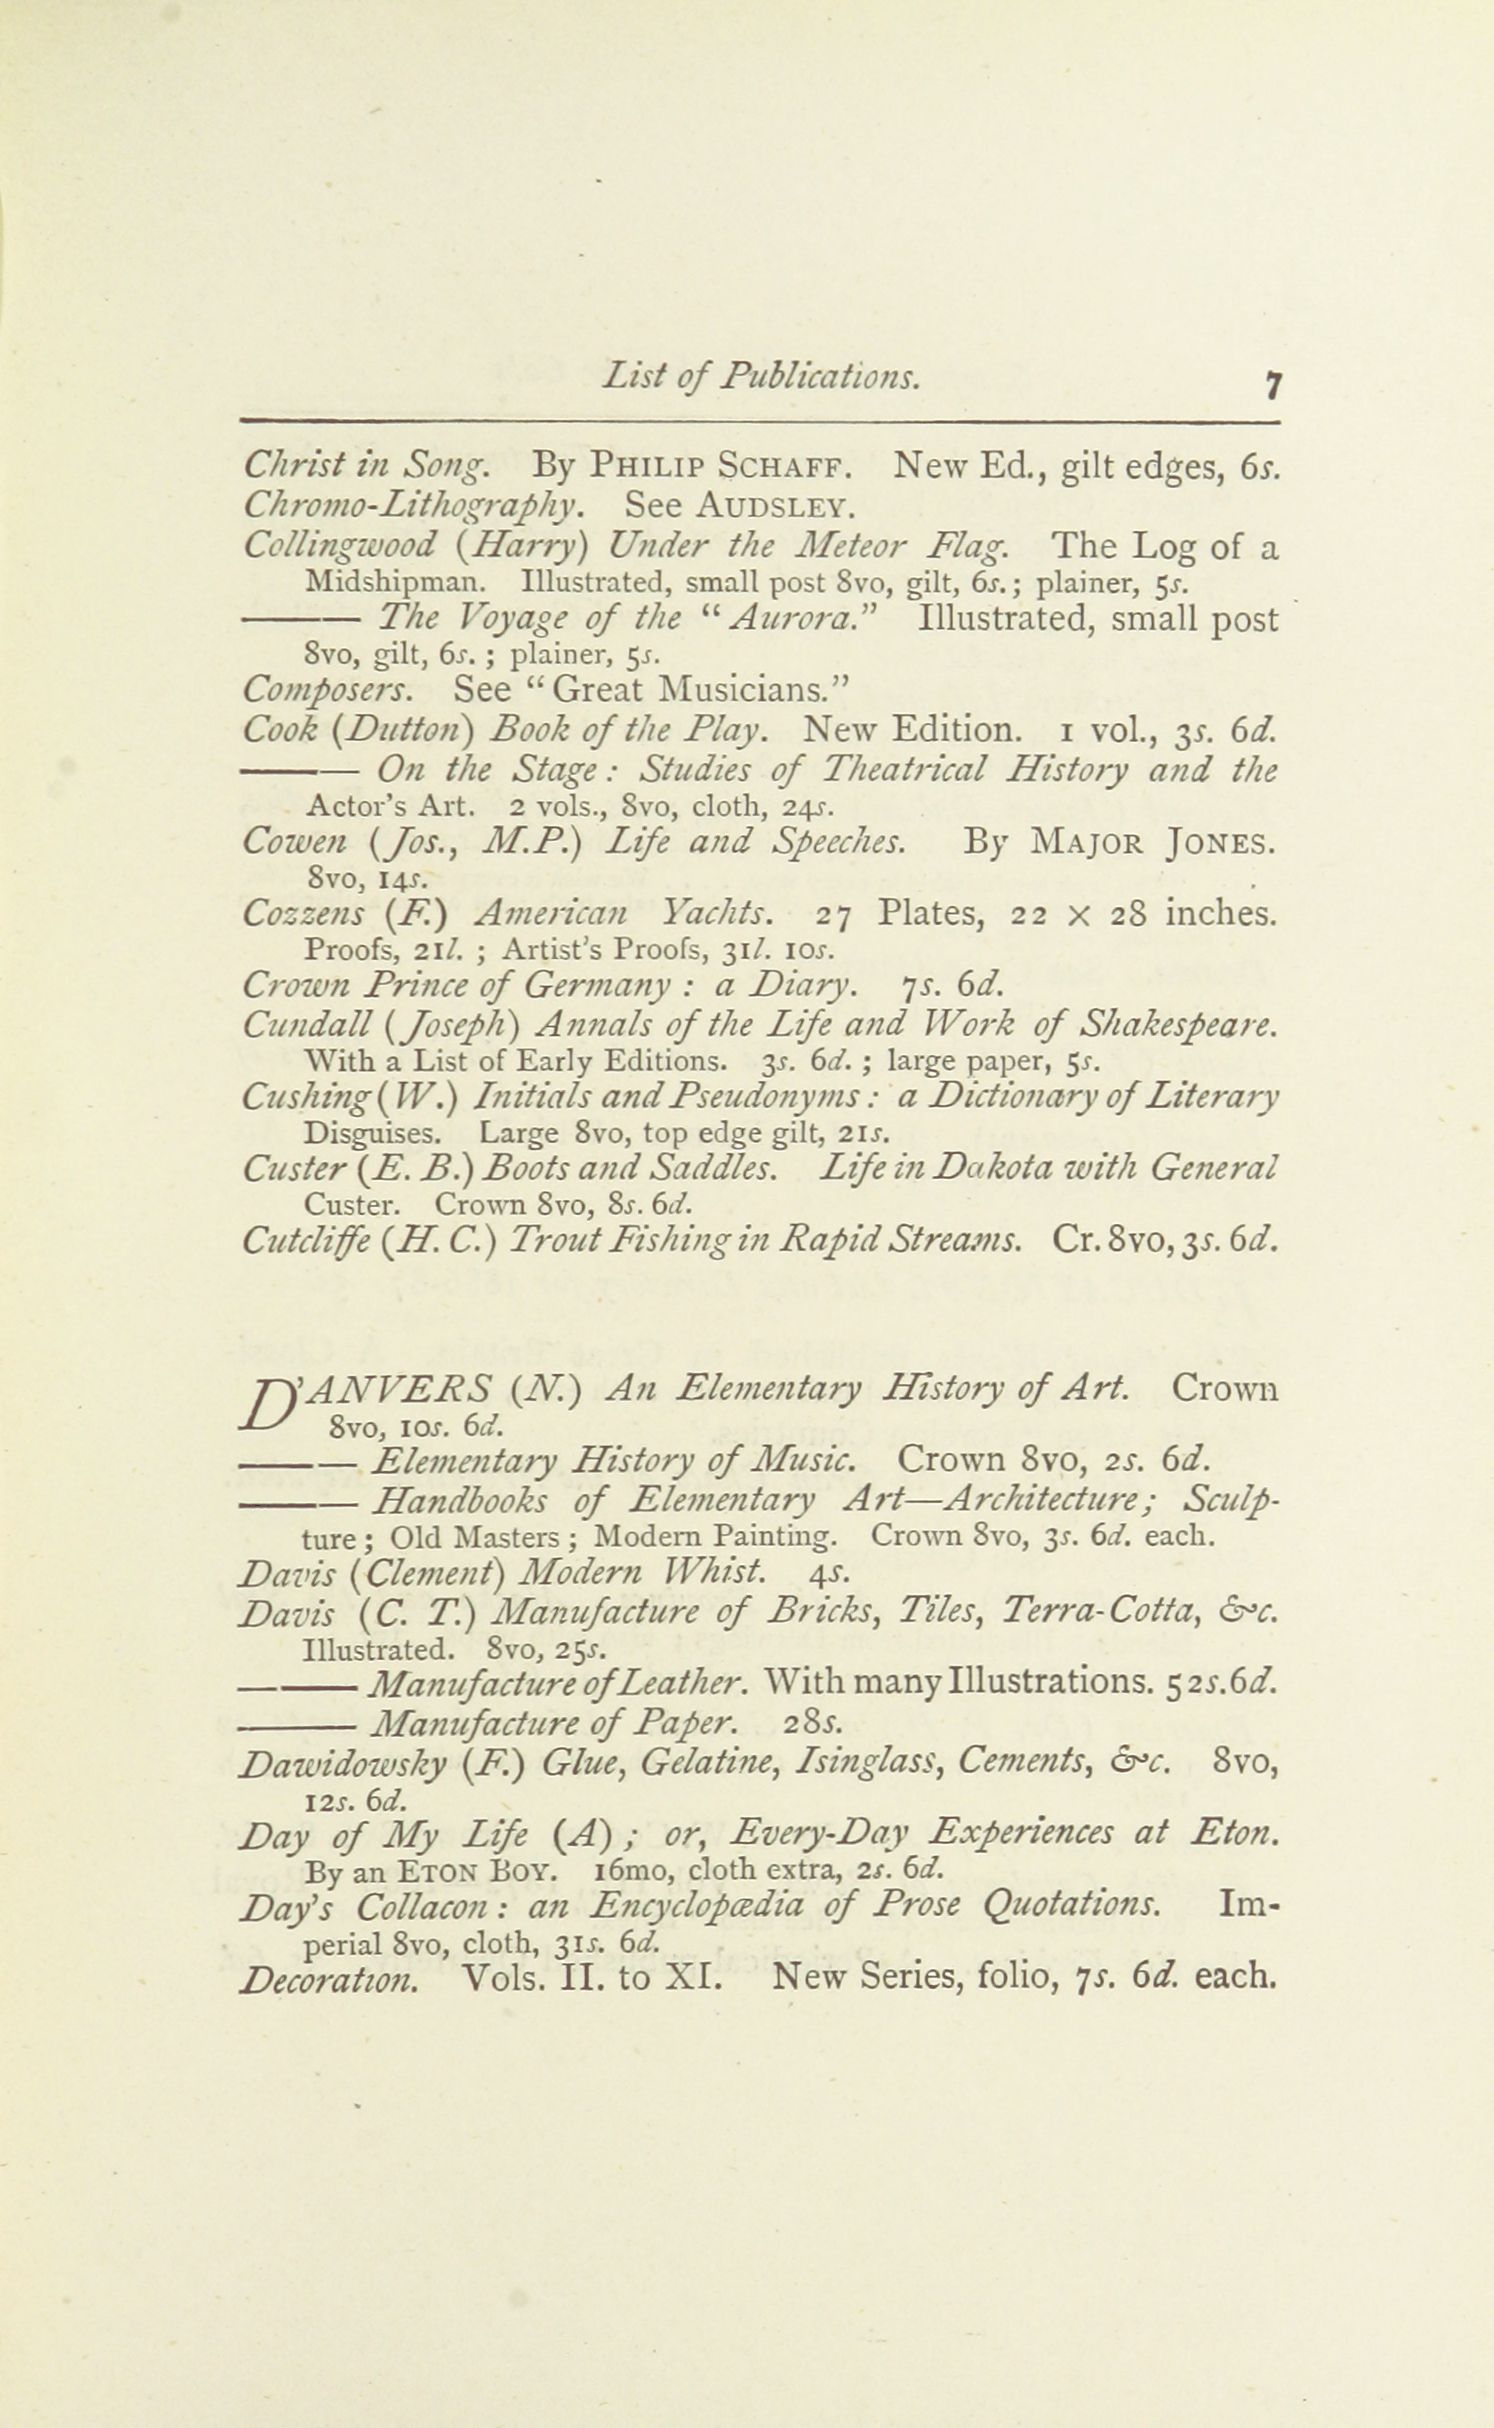 List of Publications. 7
Christ in Song. By PHILIP SCHAFF. New Ed., gilt edges, 6s.
Chromo-Lithography. See AUDSLEY.
Collingwood (Harry) Under the Meteor Flag. The Log of a
Midshipman. Illustrated, small post 8vo, gilt, 6s.; plainer, 5s.
——— The Voyage of the “Aurora.” Illustrated, small post
8vo, gilt, 6s. ; plainer, 5s.
Composers. See “Great Musicians.”
Cook (Dutton) Book of the Play. New Edition. 1 vol., 3s. 6d.
——— On the Stage: Studies of Theatrical History and the
Actor's Art. 2 vols., 8vo, cloth, 24s.
Cowen (Jos., M.P.) Life and Speeches. By MAJOR JONES.
8vo, 14s.
Cozzens (F.) American Yachts. 27 Plates, 22 × 28 inches.
Proofs, 21l. ; Artist's Proofs, 31l. 10s.
Crown Prince of Germany : a Diary. 7s. 6d.
Cundall (Joseph) Annals of the Life and Work of Shakespeare.
With a List of Early Editions. 3s. 6d. ; large paper, 5s.
Cushing (W.) Initials and Pseudonyms : a Dictionary of Literary
Disguises. Large 8vo, top edge gilt, 21s.
Custer (E. B.) Boots and Saddles. Life in Dakota with General
Custer. Crown 8vo, 8s. 6d.
Cutcliffe (H. C.) Trout Fishing in Rapid Streams. Cr. 8vo, 3s. 6d.
D'ANVERS (N.) An Elementary History of Art. Crown
8vo, 10s. 6d.
——— Elementary History of Music. Crown 8vo, 2s. 6d.
——— Handbooks of Elementary Art—Architecture; Sculp-
ture; Old Masters; Modern Painting. Crown 8vo, 3s. 6d. each.
Davis (Clement) Modern Whist. 4s.
Davis (C. T.) Manufacture of Bricks, Tiles, Terra-Cotta, &c.
Illustrated. 8vo, 25s.
——— Manufacture of Leather. With many Illustrations. 52s. 6d.
——— Manufacture of Paper. 28s.
Dawidowsky (F.) Glue, Gelatine, Isinglass, Cements, &c. 8vo,
12s. 6d.
Day of My Life (A) ; or, Every-Day Experiences at Eton.
By an ETON BOY. 16mo, cloth extra, 2s. 6d.
Day's Collacon : an Encyclopædia of Prose Quotations. Im-
perial 8vo, cloth, 31s. 6d.
Decoration. Vols. II. to XI. New Series, folio, 7s. 6d. each.